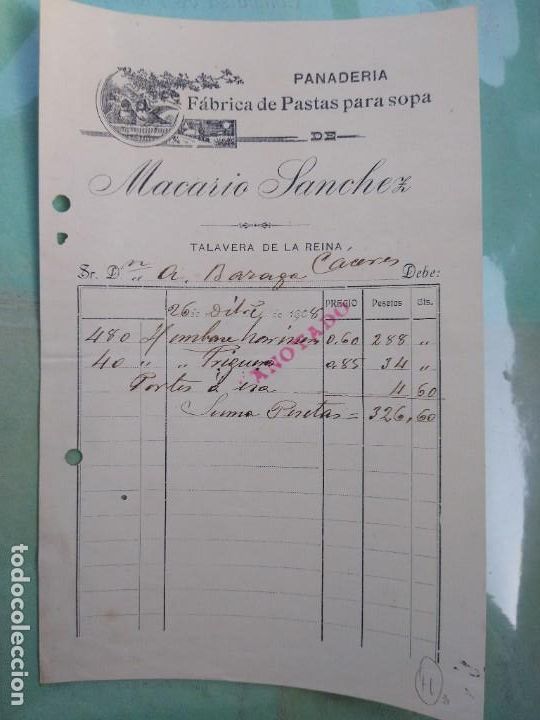 PANADERIA
Fábrica de Pastas para sopa
DE
Macario Sanchez
TALAVERA DE LA REINA
Sr. Dn A. Baraga Caceres Debe:
26 de de 1908 PRECIO Pesetas Cts.
480 0,60 288 „
40 „ „ 0,85 34 „
Portes á 4 60
Suma Pesetas = 326,60
ANOTADO
todocoleccion